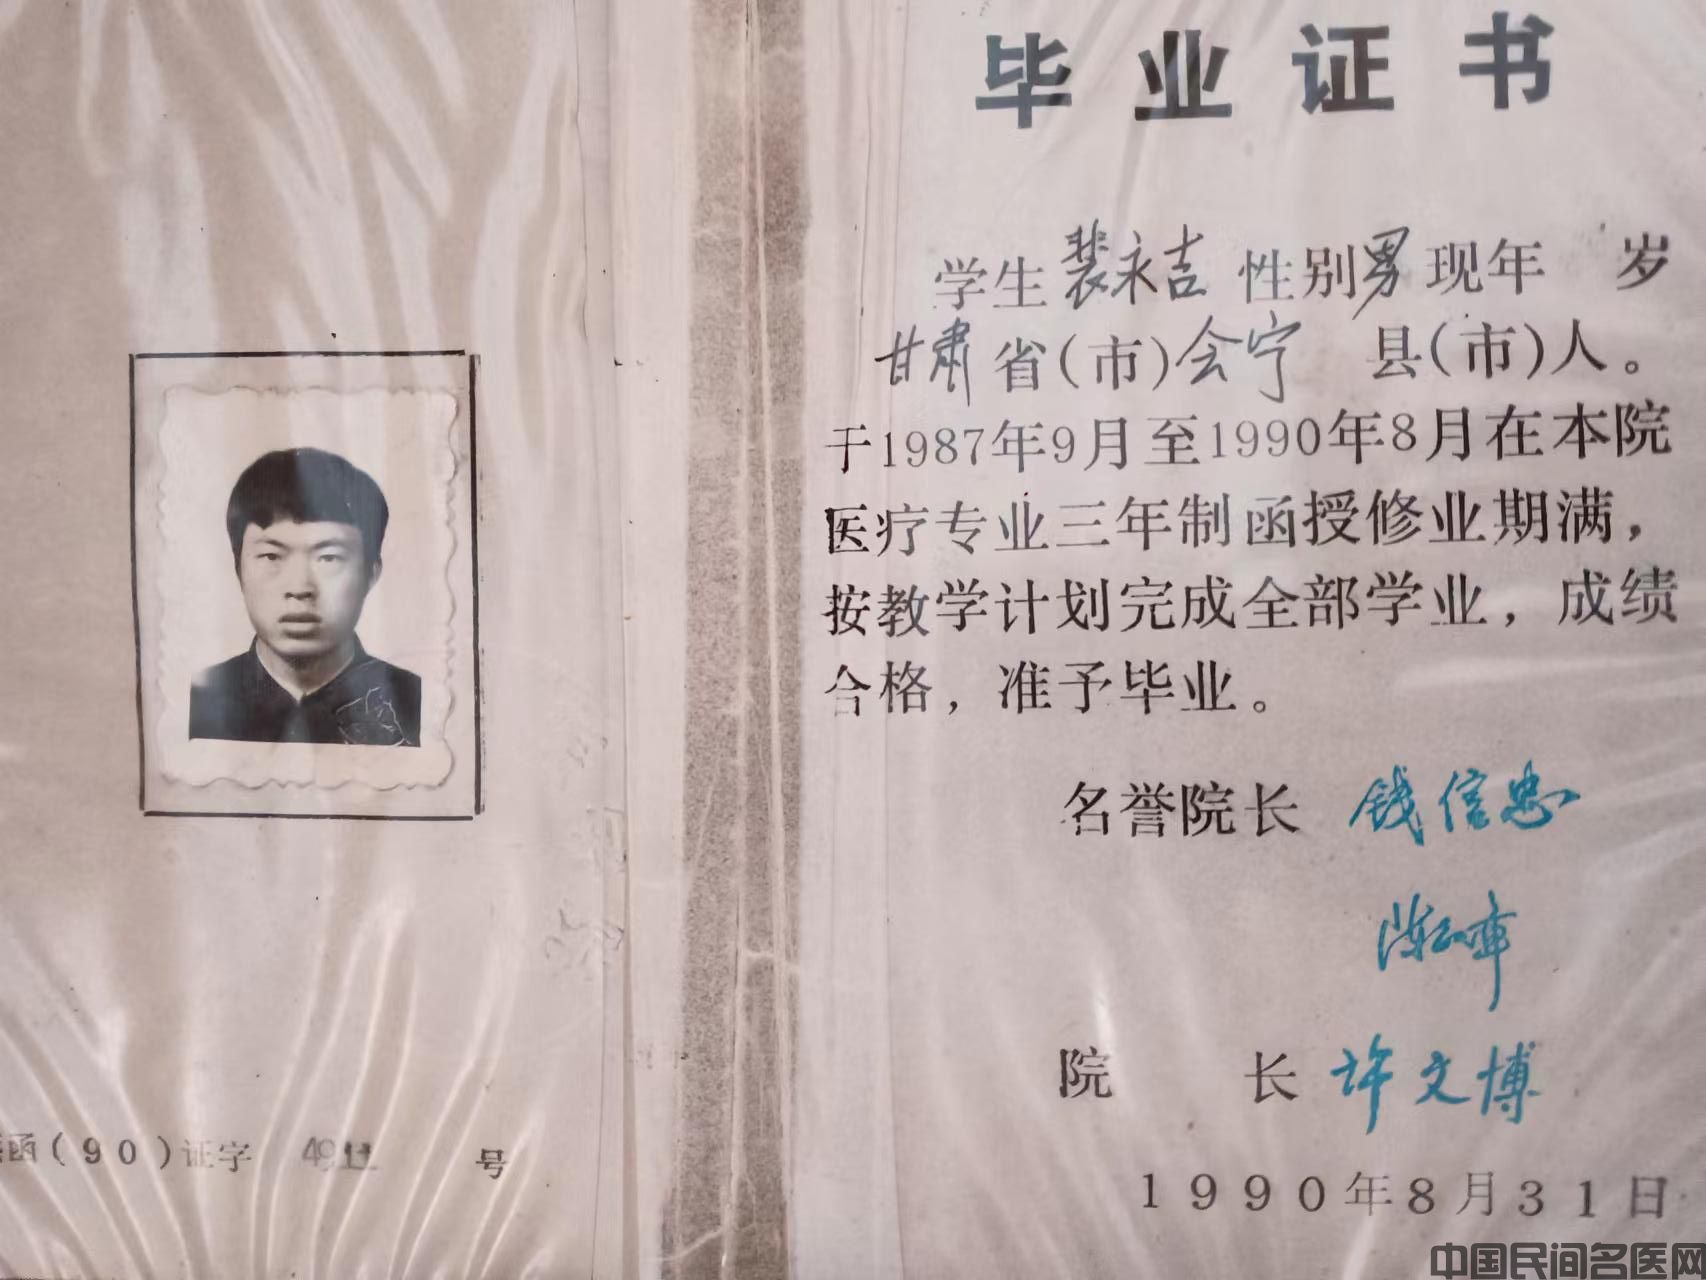 函(90)证字 号
毕业证书
学生裴永吉 性别男现年 岁
甘肃省(市)会宁 县(市)人。
于1987年9月至1990年8月在本院
医疗专业三年制函授修业期满，
按教学计划完成全部学业，成绩
合格，准予毕业。
名誉院长 钱信忠
院 长 许文博
1990年8月31日
中国民间名医网